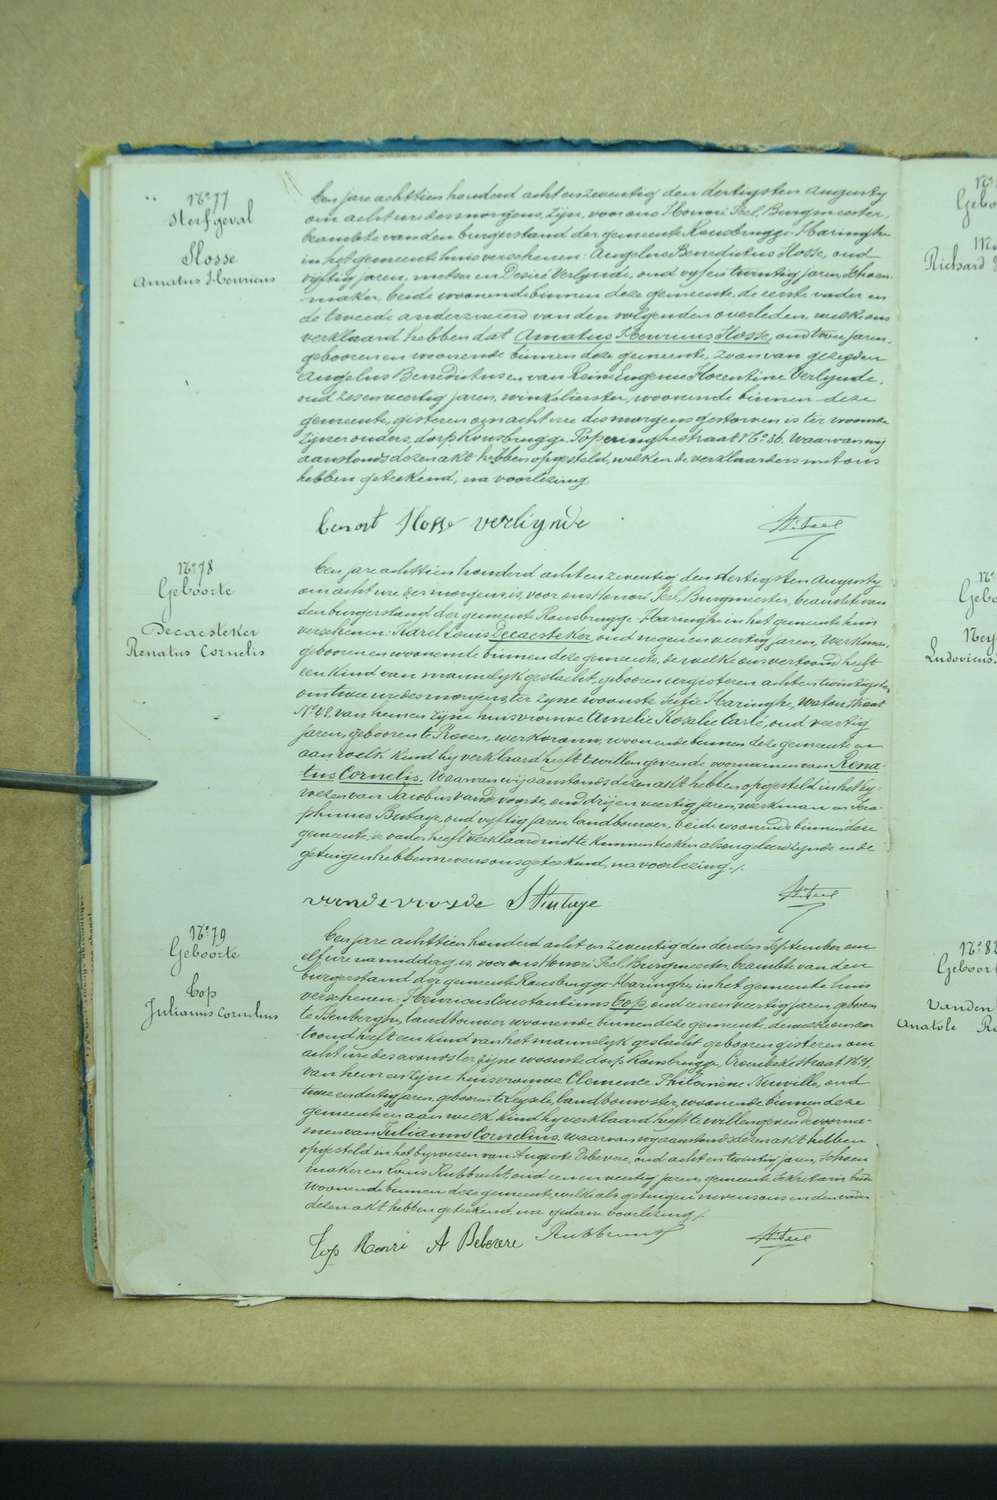 N° 77
Sterfgeval
Hosse
Amatus Henricus
Een jare achttien honderd acht en zeventig den dertigsten Augusty
om acht ure des morgens, zijn, voor ons Honoré Feel, Burgmeester,
beambte van den burgerstand der gemeente Rousbrugge-Haringhe
in het gemeente huis verschenen: Angelus Benedictus Hosse, oud
vyftig jaren, metser en Desiré Verlynde, oud vyf en twintig jaren, schoen
maker, beide woonende binnen deze gemeente, de eerste vader en
de tweede anderzweerd van den volgenden overleden, welke ons
verklaard hebben dat Amatus Henricus Hosse, oud twee jaren,
geboren en woonende binnen deze gemeente, zoon van gezegden
Angelus Benedictus en van Reine Eugenie Florentine Verlynde,
oud zes en veertig jaren, winkelierster, woonende binnen deze
gemeente, gisteren om acht ure des morgens gestorven is ter woonste
zijner ouders, dorp Rousbrugge, Poperinghestraat N° 36. Waarvan wij
aanstonds dezen akt hebben opgesteld, welken de verklaarders met ons
hebben geteekend, na voorlezing
benoit Hosse verlynde
N° 78
Geboorte
Decaesteker
Renatus Cornelis
Een jare achttien honderd acht en zeventig den dertigsten Augusty
om acht ure des morgens is, voor ons Honoré Feel, Burgmeester, beambte van
den burgerstand der gemeente Rousbrugge-Haringhe in het gemeente huis
verschenen: Karel Louis Decaesteker, oud negen en veertig jaren, werkman,
geboren en woonende binnen deze gemeente, de welke ons vertoond heeft
een kind van mannelyk geslacht, geboren eergisteren acht en twintigsten
om twee ure des morgens, ter zyne woonste sectie Haringhe, straat
N° 42, van hem en zijne huisvrouwe Amelie Rosalie Carlé, oud veertig
jaren, geboren te werkvrouw, woonende binnen deze gemeente en
aan welk kind hy verklaard heeft te willen geven de voornamen van Rena-
tus Cornelis. Waarvan wij aanstonds dezen akt hebben opgesteld in het by-
wezen van Jacobus Vandevoorde, oud drij en veertig jaren, werkman en Sera-
phinus Butaye, oud vyftig jaren, landbouwer, beide woonende binnen deze
gemeente, de vader heeft verklaard niet te kunnen teeken als ongeleerd zynde en de
getuigen hebben nevens ons geteekend, na voorlezing.
vandevoorde S Butaye
N° 79
Geboorte
Cop
Julianus Cornelius
Een jare achttien honderd acht en zeventig den derden September om
elf ure van middag is, voor ons Honoré Feel, Burgmeester, beambte van den
burgerstand der gemeente Rousbrugge-Haringhe, in het gemeente huis
verschenen: Henricus Constantinus Cop, oud een en veertig jaren, geboren
te landbouwer woonende binnen deze gemeente, dewelke ons ver-
toond heeft een kind van het mannelyk geslacht geboren gisteren om
acht ure des avonds ter zijne woonste dorp Rousbrugge, Crombekestraat N° 4,
van hem en zijne huisvrouwe Clemence Philomène Neuville, oud
twee en dertig jaren, geboren te Leysele, landbouwster, woonende binnen deze
gemeente en aan welk kind hy verklaard heeft te willen geven de voorna-
men van Julianus Cornelius. waarvan wij aanstonds dezen akt hebben
opgesteld in het bywezen van Auguste Debevere, oud acht en twintig jaren, schoen
maker en Louis Rubbrecht, oud een en veertig jaren, gemeente sekretaris beide
woonende binnen deze gemeente, welke als getuigen nevens ons en den vader
dezen akt hebben geteekend, na gedane voorlezing.
Cop Henri A Debevere Rubbrecht
Geboo
Richard
Geboo
Ludovicus
N° 82
Geboort
Vanden
Anatole